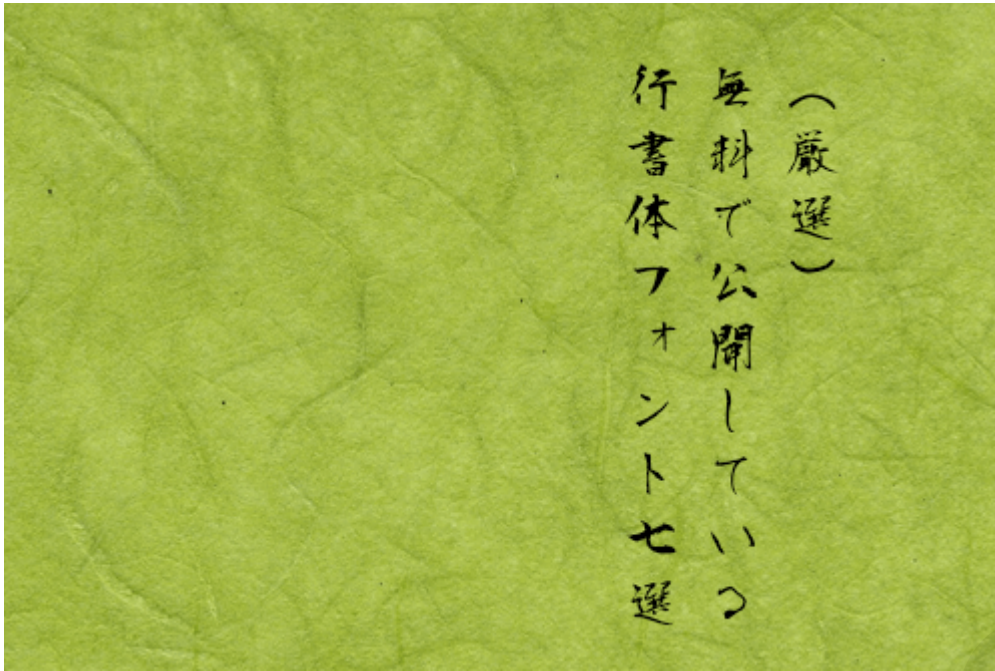 （厳選）
無料で公開している
行書体フォント七選